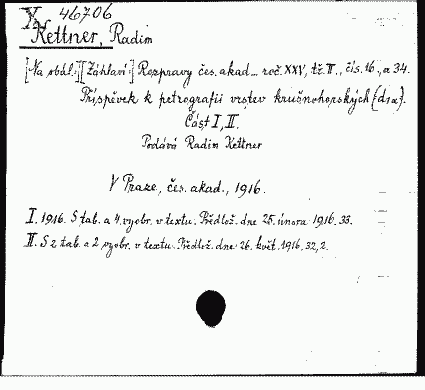 X, 46706
Kettner, Radim
[Na obál.:] [Záhlaví:] Rozpravy čes. akad... roč. XXV, tř. II., čís. 16., a 34.
Příspěvek k petrografii vrstev krušnohorských (d1α).
Část I, II.
Podává Radim Kettner
V Praze, čes. akad., 1916.
I. 1916. S tab. a 4 vyobr. v textu. Předlož. dne 25. února 1916. 33.
II. S 2 tab. a 2 vyobr. v textu. Předlož. dne 26. květ. 1916. 32, 2.